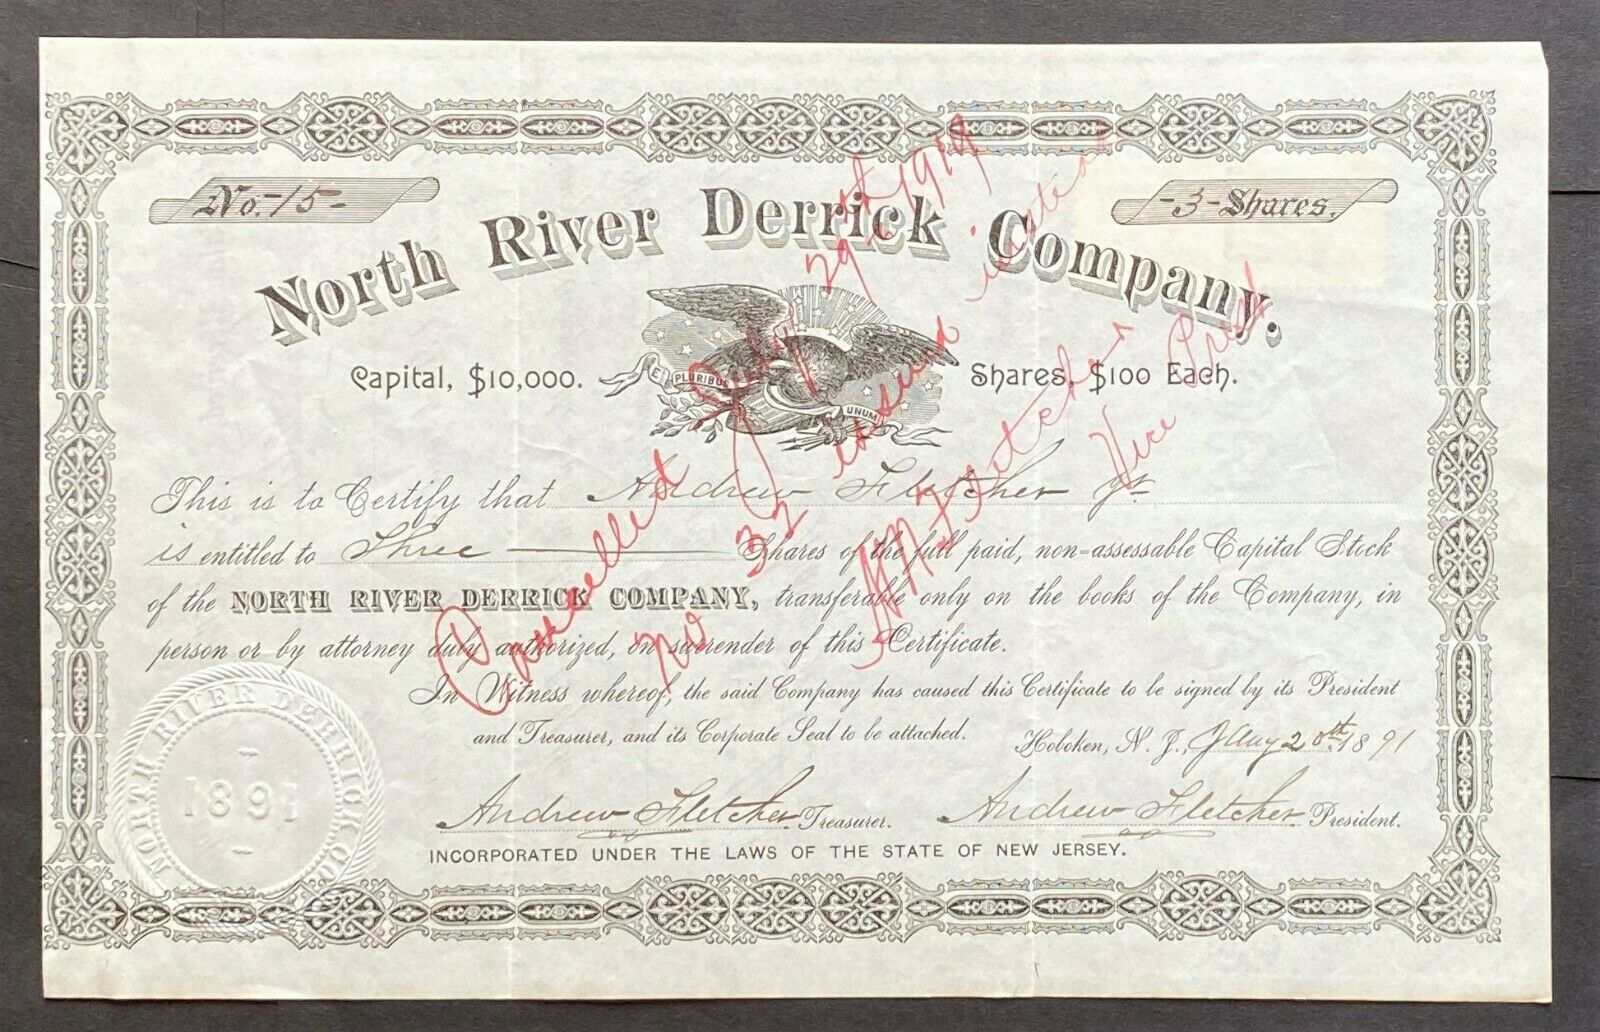 No. -15-
-3- Shares.
North River Derrick Company,
Capital, $10,000.
E. PLURIBUS UNUM
Shares, $100 Each.
This is to Certify that Andrew Fletcher Jr
is entitled to Three Shares of the full paid, non-assessable Capital Stock
of the NORTH RIVER DERRICK COMPANY, transferable only on the books of the Company, in
person or by attorney duly authorized, on surrender of this Certificate.
In Witness whereof, the said Company has caused this Certificate to be signed by its President
and Treasurer, and its Corporate Seal to be attached. Hoboken, N. J., 20th 1891
Andrew Fletcher Treasurer. Andrew Fletcher President.
INCORPORATED UNDER THE LAWS OF THE STATE OF NEW JERSEY.
NORTH RIVER DERRICK CO.
- 1891 -
Cancelled July 29th 1919
No 32 issued in
Fletcher
Vice Prest